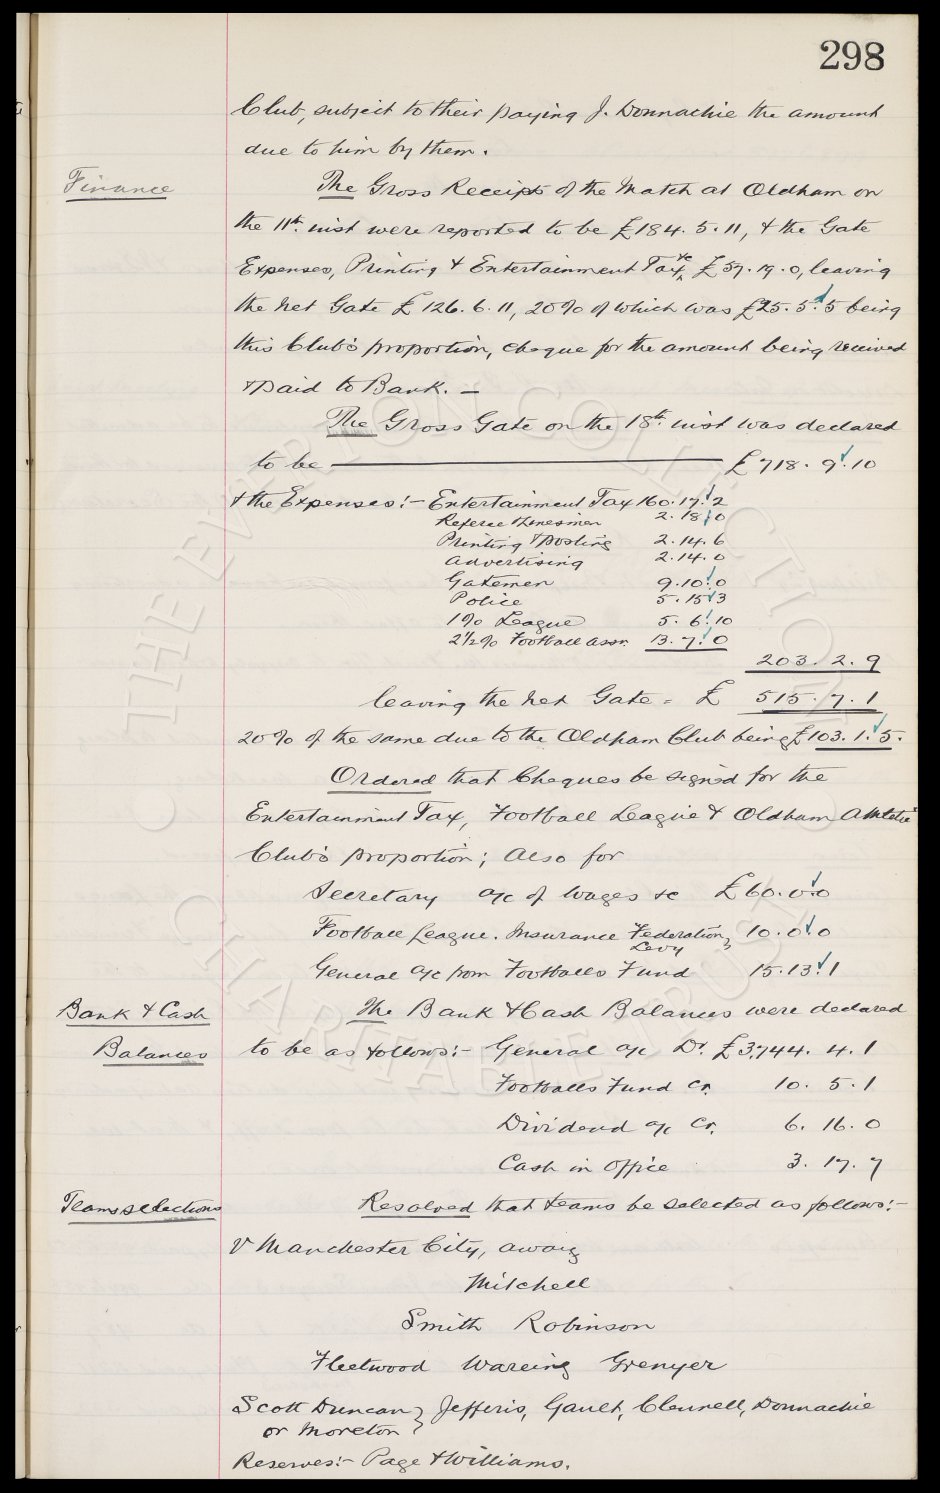 298
Club, subject to their paying J. Donnachie the amount
due to him by them.
Finance
The Gross Receipts of the Match at Oldham on
the 11th. inst were reported to be £184. 5. 11, & the Gate
Expenses, Printing & Entertainment Tax &c £57. 19. 0, leaving
the net Gate £126. 6. 11, 20% of which was £25. 5. 5 being
this Club's proportion, cheque for the amount being received
& paid to Bank. —
The Gross Gate on the 18th. inst was declared
to be £718. 9. 10
& the Expenses:- Entertainment Tax 160. 17. 2
Referee & Linesmen 2. 18. 0
Printing & Posting 2. 14. 6
Advertising 2. 14. 0
Gatemen 9. 10. 0
Police 5. 15. 3
1% League 5. 6. 10
2½% Football Assn. 13. 7. 0
203. 2. 9
leaving the net Gate = £ 515. 7. 1
20% of the same due to the Oldham Club being £103. 1. 5.
Ordered that Cheques be signed for the
Entertainment Tax, Football League & Oldham Athletic
Club's proportion; Also for
Secretary a/c of Wages &c £60. 0. 0
Football League. Insurance Federation Levy } 10. 0. 0
General a/c from Footballs Fund 15. 13. 1
Bank & Cash
Balances
The Bank & Cash Balances were declared
to be as follows:- General a/c Dr. £3,744. 4. 1
Footballs Fund Cr. 10. 5. 1
Dividend a/c Cr. 6. 16. 0
Cash in Office 3. 17. 7
Teams selections
Resolved that teams be selected as follows:-
V Manchester City, away
Mitchell
Smith Robinson
Fleetwood Wareing Grenyer
Scott Duncan or Moreton } Jefferis, Gault, Clennell, Donnachie
Reserves:- Page & Williams.
© THE EVERTON COLLECTION
CHARITABLE TRUST